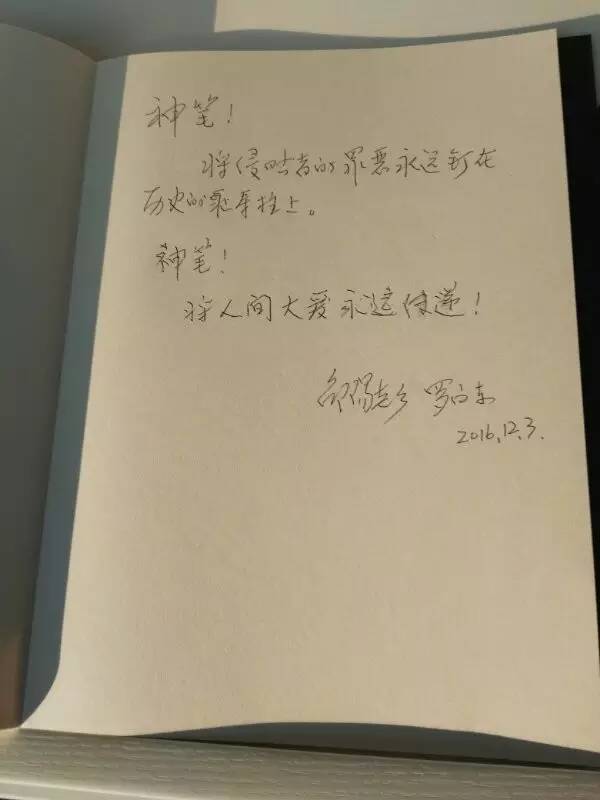 神笔！
将侵略者的罪恶永远钉在
历史的耻辱柱上。
神笔！
将人间大爱永远传递！
邵阳老乡 罗向东
2016.12.3.